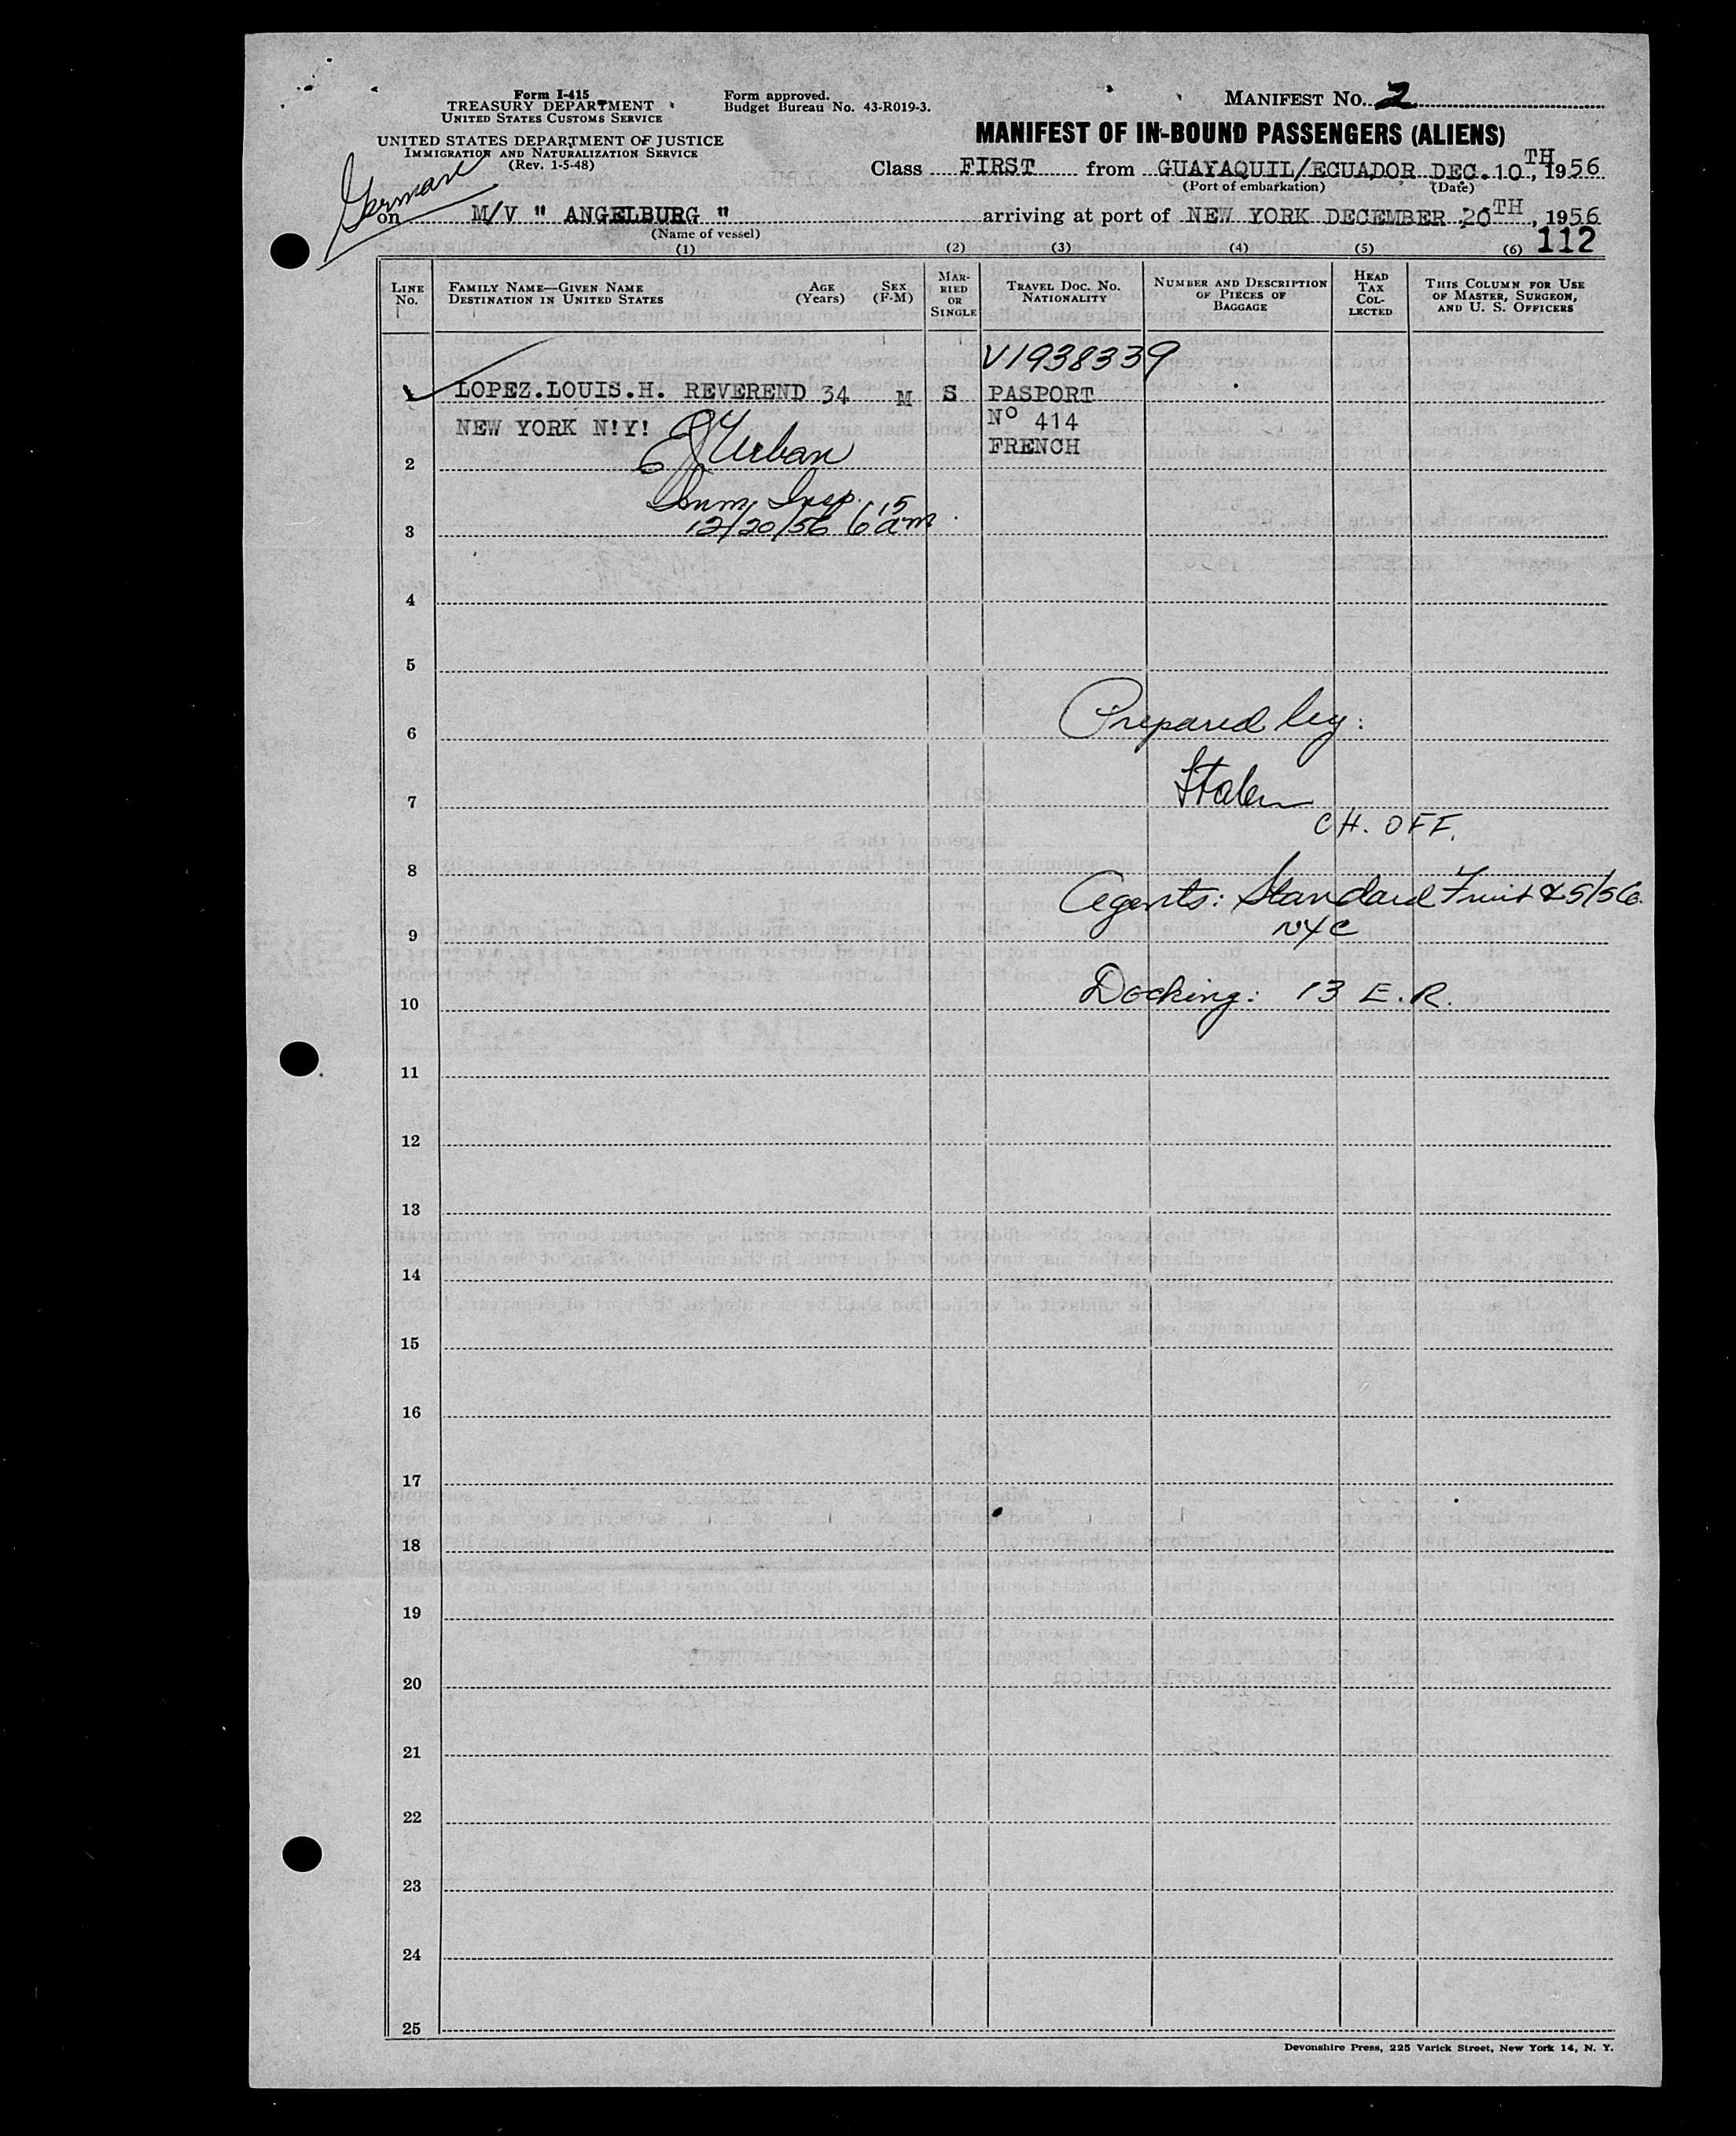 Form I-415
TREASURY DEPARTMENT
UNITED STATES CUSTOMS SERVICE
UNITED STATES DEPARTMENT OF JUSTICE
IMMIGRATION AND NATURALIZATION SERVICE
(Rev. 1-5-48)
Form approved.
Budget Bureau No. 43-R019-3.
MANIFEST NO. 2
MANIFEST OF IN-BOUND PASSENGERS (ALIENS)
Class FIRST from GUAYAQUIL/ECUADOR DEC. 10TH, 1956
(Port of embarkation) (Date)
German
on M/V " ANGELBURG " arriving at port of NEW YORK DECEMBER 20TH, 1956
(Name of vessel)
112
(1) (2) (3) (4) (5) (6)
LINE No. FAMILY NAME—GIVEN NAME DESTINATION IN UNITED STATES AGE (Years) SEX (F-M) MARRIED OR SINGLE TRAVEL DOC. NO. NATIONALITY NUMBER AND DESCRIPTION OF PIECES OF BAGGAGE HEAD TAX COLLECTED THIS COLUMN FOR USE OF MASTER, SURGEON, AND U. S. OFFICERS
V1938339
1 LOPEZ.LOUIS.H. REVEREND 34 M S PASPORT
NEW YORK N!Y! Nº 414
FRENCH
EJ Urban
2
Imm. Insp.
12/20/56 6 15 am
3
4
5
Prepared by:
6
7
CH. OFF.
8
Agents: Standard Fruit & S/S Co.
NYC
9
Docking: 13 E.R.
10
11
12
13
14
15
16
17
18
19
20
21
22
23
24
25
Devonshire Press, 225 Varick Street, New York 14, N. Y.